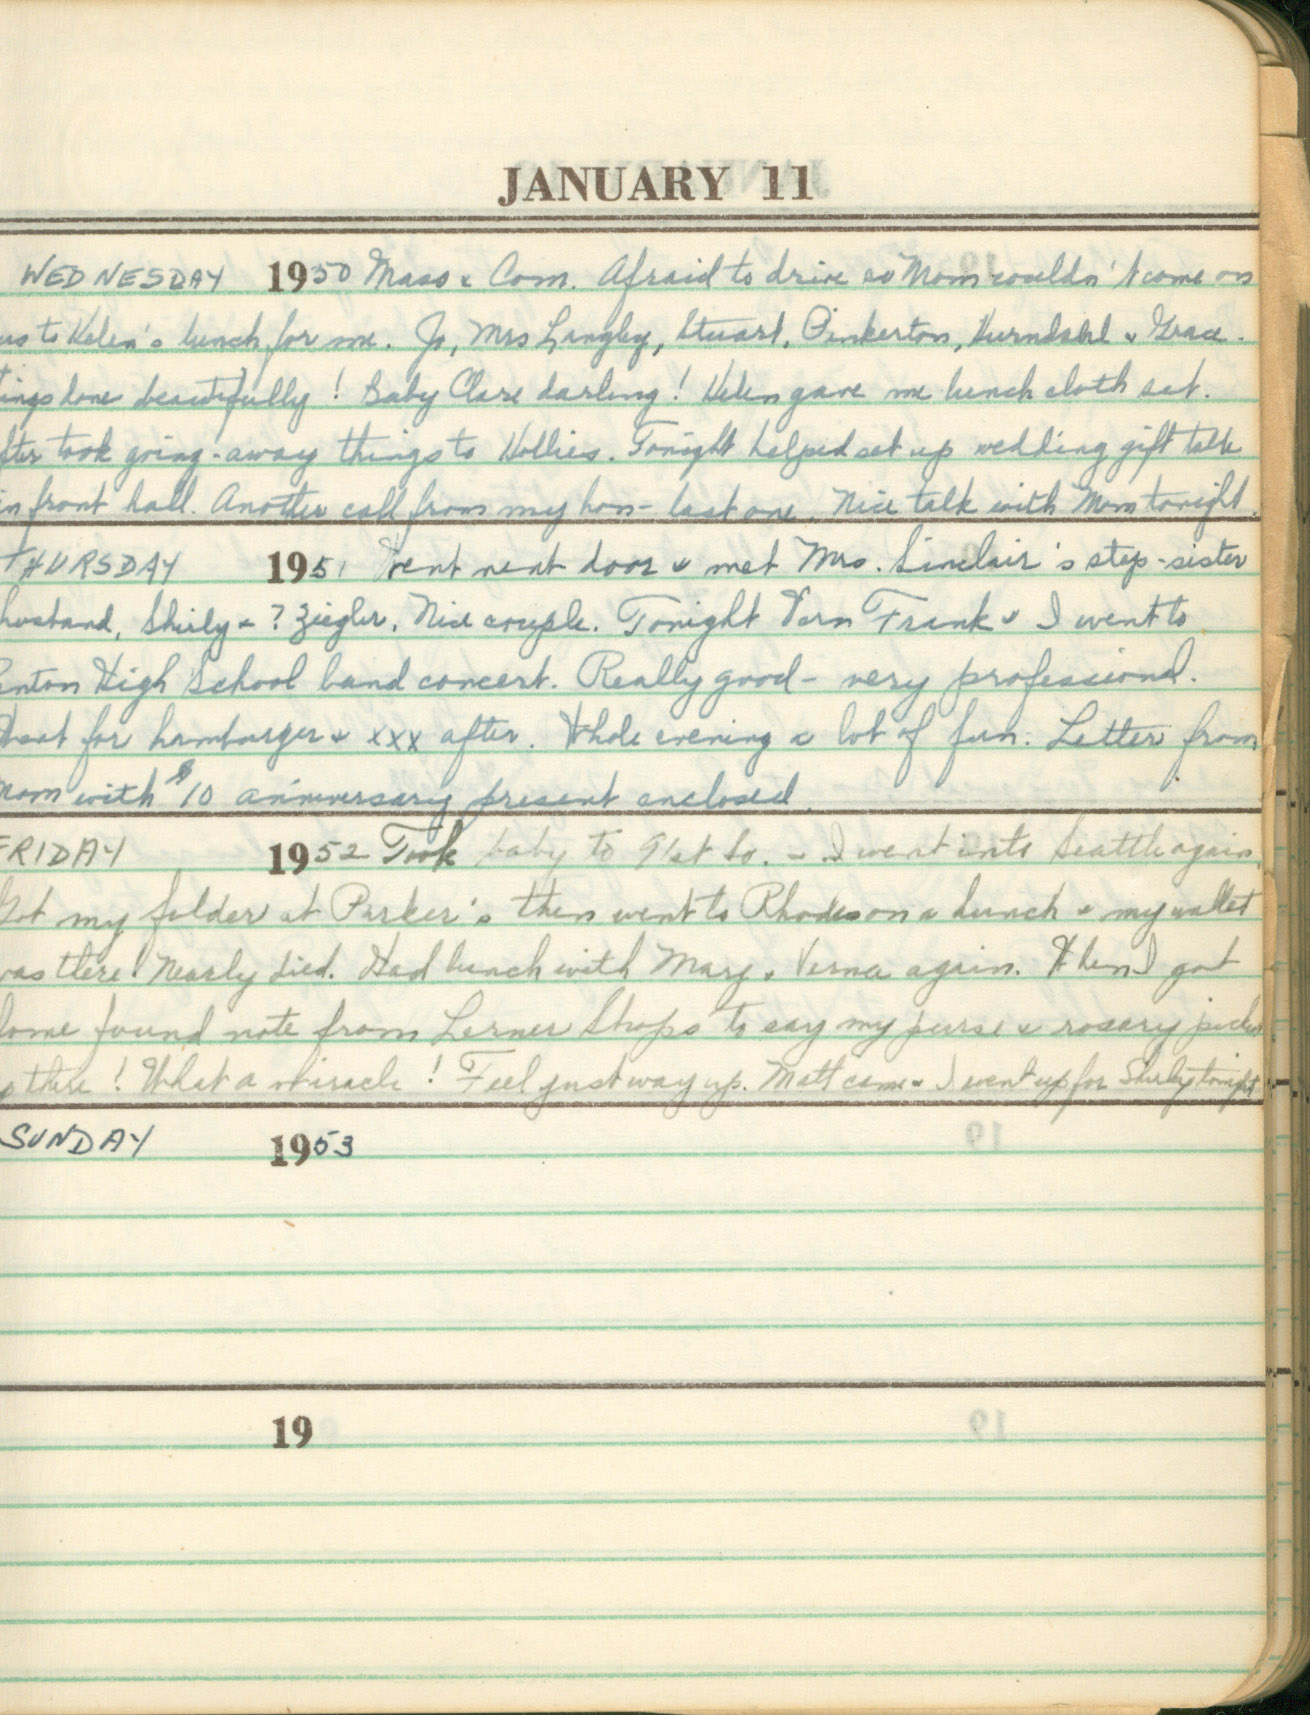 JANUARY 11
WEDNESDAY 1950 Mass & Com. Afraid to drive so Mom wouldn't come on
us to Helen's lunch for me. Jo, Mrs Langby, Stuart, Pinkerton, Hurndahl & Grace.
ings done beautifully! Baby Clare darling! Helen gave me lunch cloth set.
fter took going-away things to Hollies. Tonight helped set up wedding gift table
in front hall. Another call from my hon- last one. Nice talk with Mom tonight.
THURSDAY 1951 Went next door & met Mrs. Sinclair's step-sister
husband, Shirly & ? Ziegler. Nice couple. Tonight Vern Frank & I went to
enton High School band concert. Really good - very professional.
for hamburger & xxx after. Whole evening a lot of fun. Letter from
Mom with $10 anniversary present enclosed.
FRIDAY 1952 Took baby to 91st So. - I went into Seattle again.
Got my folder at Parker's then went to Rhodes on a hunch & my wallet
was there! Nearly died. Had lunch with Marg & Verna again. When I got
home found note from Lerner Shops to say my purse & rosary picked
there! What a miracle! Feel just way up. Matt came & I went up for Shirley tonight
SUNDAY 1953
19